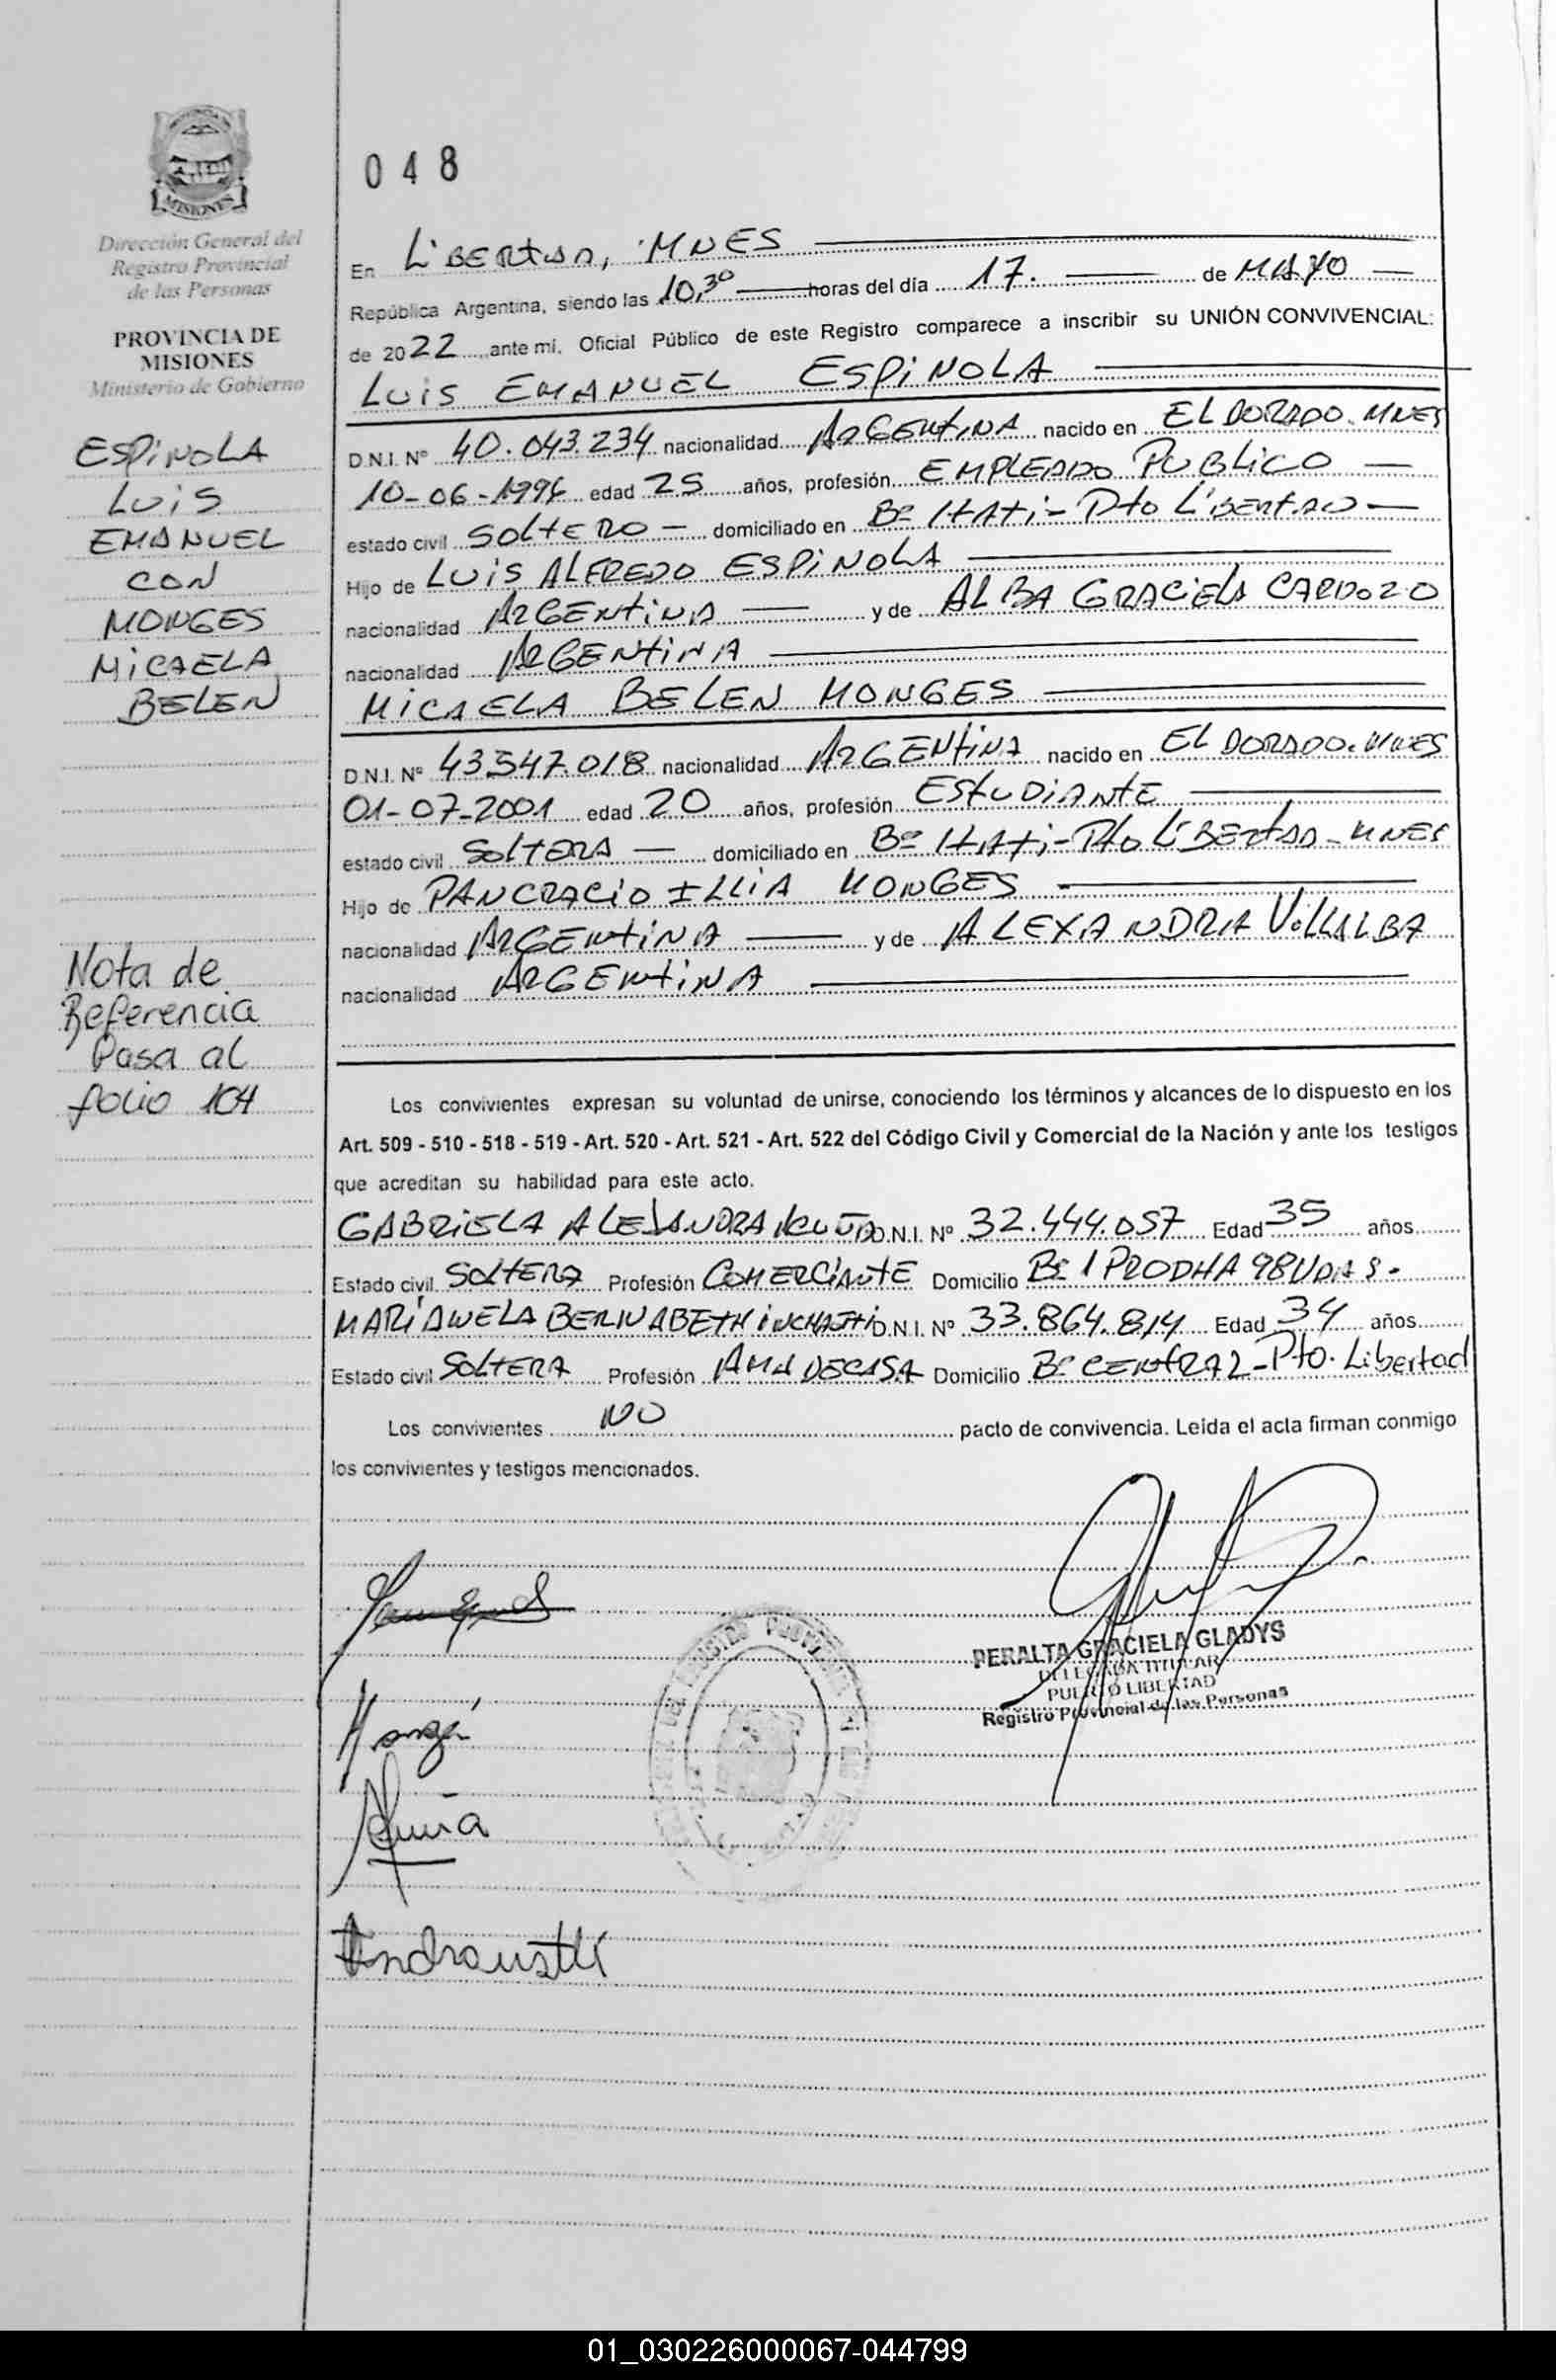 MISIONES
Dirección General del
Registro Provincial
de las Personas
PROVINCIA DE
MISIONES
Ministerio de Gobierno
ESPINOLA
LUIS
EMANUEL
CON
MONGES
MICAELA
BELEN
Nota de
Referencia
Pasa al
folio 104
048
En LIBERTAD, MNES
República Argentina, siendo las 10,30 horas del día 17. de MAYO
de 2022 ante mí, Oficial Público de este Registro comparece a inscribir su UNIÓN CONVIVENCIAL:
LUIS EMANUEL ESPINOLA
D.N.I. Nº 40.043.234 nacionalidad ARGENTINA nacido en ELDORADO.MNES
10-06-1996 edad 25 años, profesión EMPLEADO PUBLICO
estado civil SOLTERO domiciliado en Bº ITATI - Pto LIBERTAD
Hijo de LUIS ALFREDO ESPINOLA
nacionalidad ARGENTINA y de ALBA GRACIELA CARDOZO
nacionalidad ARGENTINA
MICAELA BELEN MONGES
D.N.I. Nº 43.547.018 nacionalidad ARGENTINA nacido en ELDORADO.MNES
01-07-2001 edad 20 años, profesión ESTUDIANTE
estado civil SOLTERA domiciliado en Bº ITATI - Pto LIBERTAD - MNES
Hijo de PANCRACIO ILLIA MONGES
nacionalidad ARGENTINA y de ALEXANDRA VILLALBA
nacionalidad ARGENTINA
Los convivientes expresan su voluntad de unirse, conociendo los términos y alcances de lo dispuesto en los
Art. 509 - 510 - 518 - 519 - Art. 520 - Art. 521 - Art. 522 del Código Civil y Comercial de la Nación y ante los testigos
que acreditan su habilidad para este acto.
GABRIELA ALEJANDRA ACUÑA D.N.I. Nº 32.444.057 Edad 35 años
Estado civil SOLTERA Profesión COMERCIANTE Domicilio Bº 1 PRODHA 98 VDAS.
MARIANELA BERNABETH D.N.I. Nº 33.864.814 Edad 34 años
Estado civil SOLTERA Profesión AMA DE CASA Domicilio Bº CENTRAL - Pto. Libertad
Los convivientes NO pacto de convivencia. Leída el acta firman conmigo
los convivientes y testigos mencionados.
PERALTA GRACIELA GLADYS
DELEGADA TITULAR
PUERTO LIBERTAD
Registro Provincial de las Personas
Acuña
01_030226000067-044799